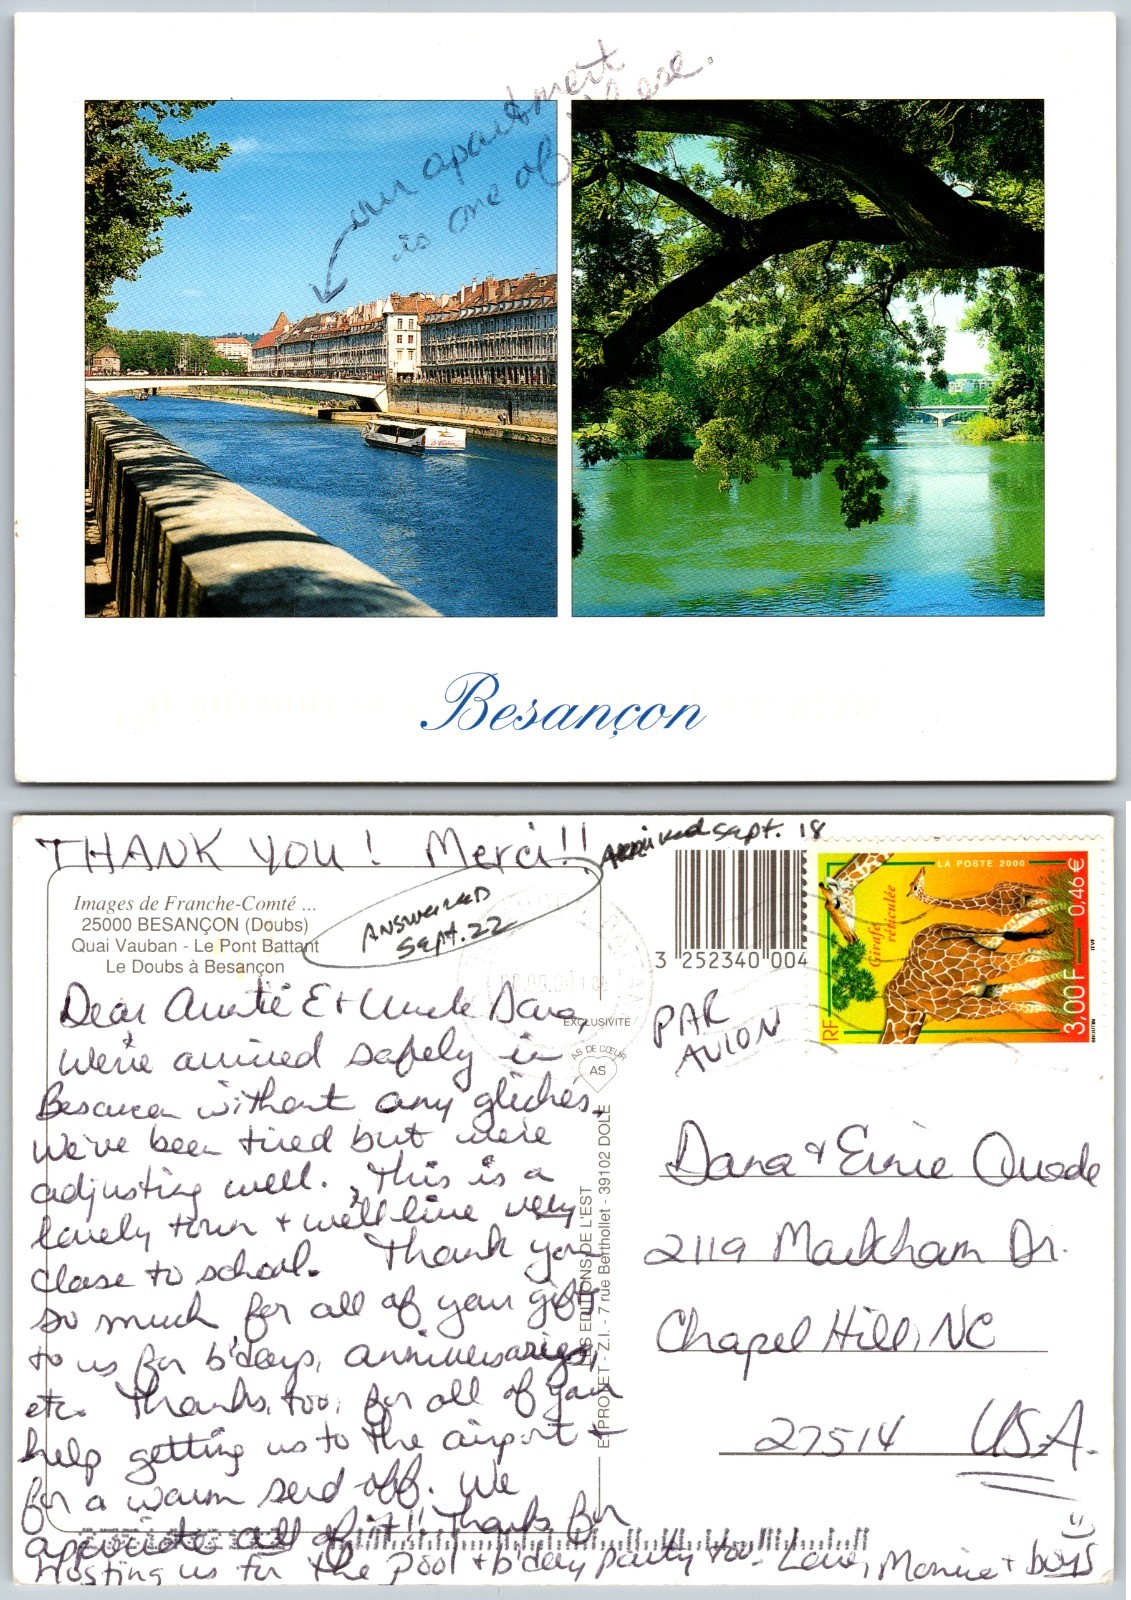 our apartment
is one of these.
Besançon
THANK YOU! Merci!!
Arrived Sept. 18
Answered
Sept. 22
Images de Franche-Comté ...
25000 BESANÇON (Doubs)
Quai Vauban - Le Pont Battant
Le Doubs à Besançon
3 252340 004
LA POSTE 2000
0,46 €
Girafe
réticulée
3,00 F
RF
PAR
AVION
EXCLUSIVITÉ
AS DE CŒUR
AS
Dear Auntie E + Uncle Dana,
We've arrived safely in
Besancon without any glitches.
We've been tired but we're
adjusting well. This is a
lovely town + we'll live very
close to school. Thank you
so much for all of your gifts
to us for b'days, anniversaries,
etc. Thanks, too, for all of your
help getting us to the airport +
for a warm send off. We
appreciate all of it!! Thanks for
Hosting us for the pool + b'day party too. Love, Monica + boys
EDITIONS DE L'EST
PROTET - Z.I. - 7 rue Berthollet - 39102 DOLE
Dana + Ernie Quade
2119 Markham Dr.
Chapel Hill, NC
27514 USA.